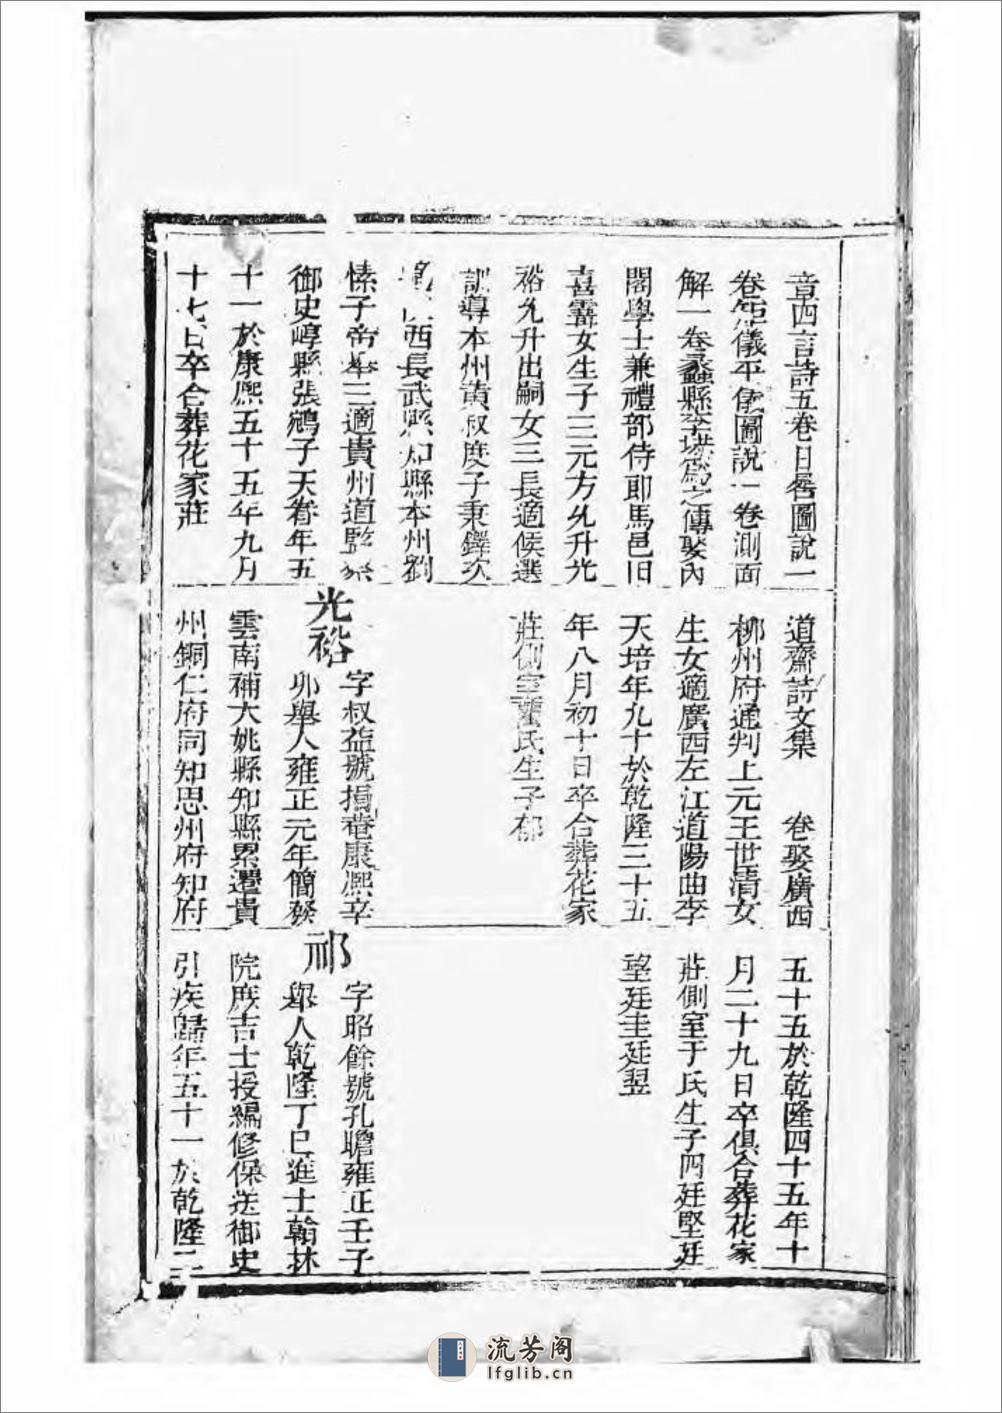 章四言詩五卷日晷圖說一
卷儀平儀圖說一卷測面
解一卷蠡縣李塨爲之傳娶內
閣學士兼禮部侍郎馬邑田
喜霱女生子三元方允升光
裕允升出嗣女三長適候選
訓導本州黃叔度子秉鐸次
西長武縣知縣本州劉
愫子三適貴州道監察
御史崞縣張鵷子天眷年五
十一於康熙五十五年九月
十七日卒合葬花家莊
道齋詩文集 卷娶廣西
柳州府通判上元王世清女
生女適廣西左江道陽曲李
天培年九十於乾隆三十五
年八月初十日卒合葬花家
莊側室董氏生子郁
光裕
字叔益號損菴康熙辛
卯舉人雍正元年簡發
雲南補大姚縣知縣累遷貴
州銅仁府同知思州府知府
五十五於乾隆四十五年十
月二十九日卒俱合葬花家
莊側室于氏生子四廷堅廷
望廷圭廷翌
祁
字昭餘號孔瞻雍正壬子
舉人乾隆丁巳進士翰林
院庶吉士授編修保送御史
引疾歸年五十一於乾隆二
流芳阁
lfglib.cn